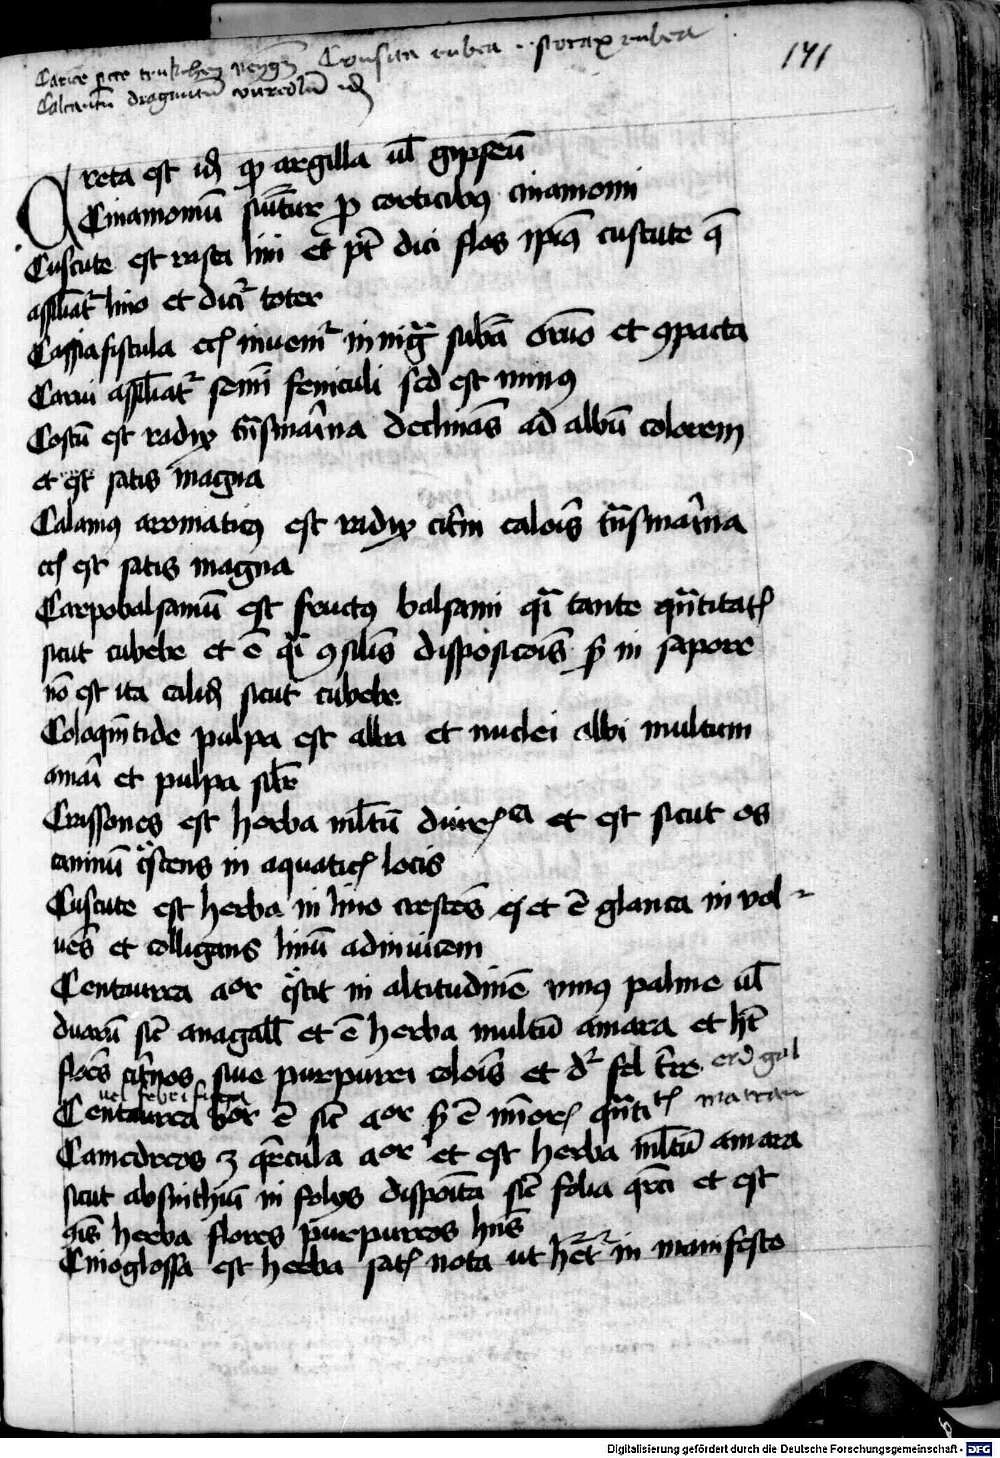 Carice sicce truk
Consita rubea storax rubea
141
Calcantum dragantum idem
Creta est idem quod argilla vel gipseum
Cinamomum pro corticibus cinamomi
Cuscute est lini et dici flos cuscute
lino et dicitur toter
Cassiafistula in et compacta
Carui semini feniculi sed est minus
Costum est radix declinans ad album colorem
et est satis magna
Calamus aromaticus est radix citrini coloris
est satis magna
Carpobalsamum est fructus balsami tante quantitatis
sicut cubebe et est dispositionis sed in sapore
non est ita calidum sicut cubebe
Coloquintide pulpa est alba et nuclei albi multum
amari et pulpa similiter
Crissones est herba multum et est sicut os
caninum crescens in aquaticis locis
Cuscute est herba in lino crescens et est glauca in vol-
vens et colligans linum adinvicem
Centaurea maior crescit in altitudine unius palme vel
duarum sicut anagalli et est herba multum amara et habet
flores citrinos sive purpurei coloris et dicitur fel terre erd gal
vel febrifuga
Centaurea minor est sicut maior sed est minoris quantitatis
Camedreos quercula maior et est herba multum amara
sicut absinthium in foliis sicut folia quercus et est
herba flores purpureos habens
Cinoglossa est herba satis nota ut habetur in manifesto
Digitalisierung gefördert durch die Deutsche Forschungsgemeinschaft - DFG